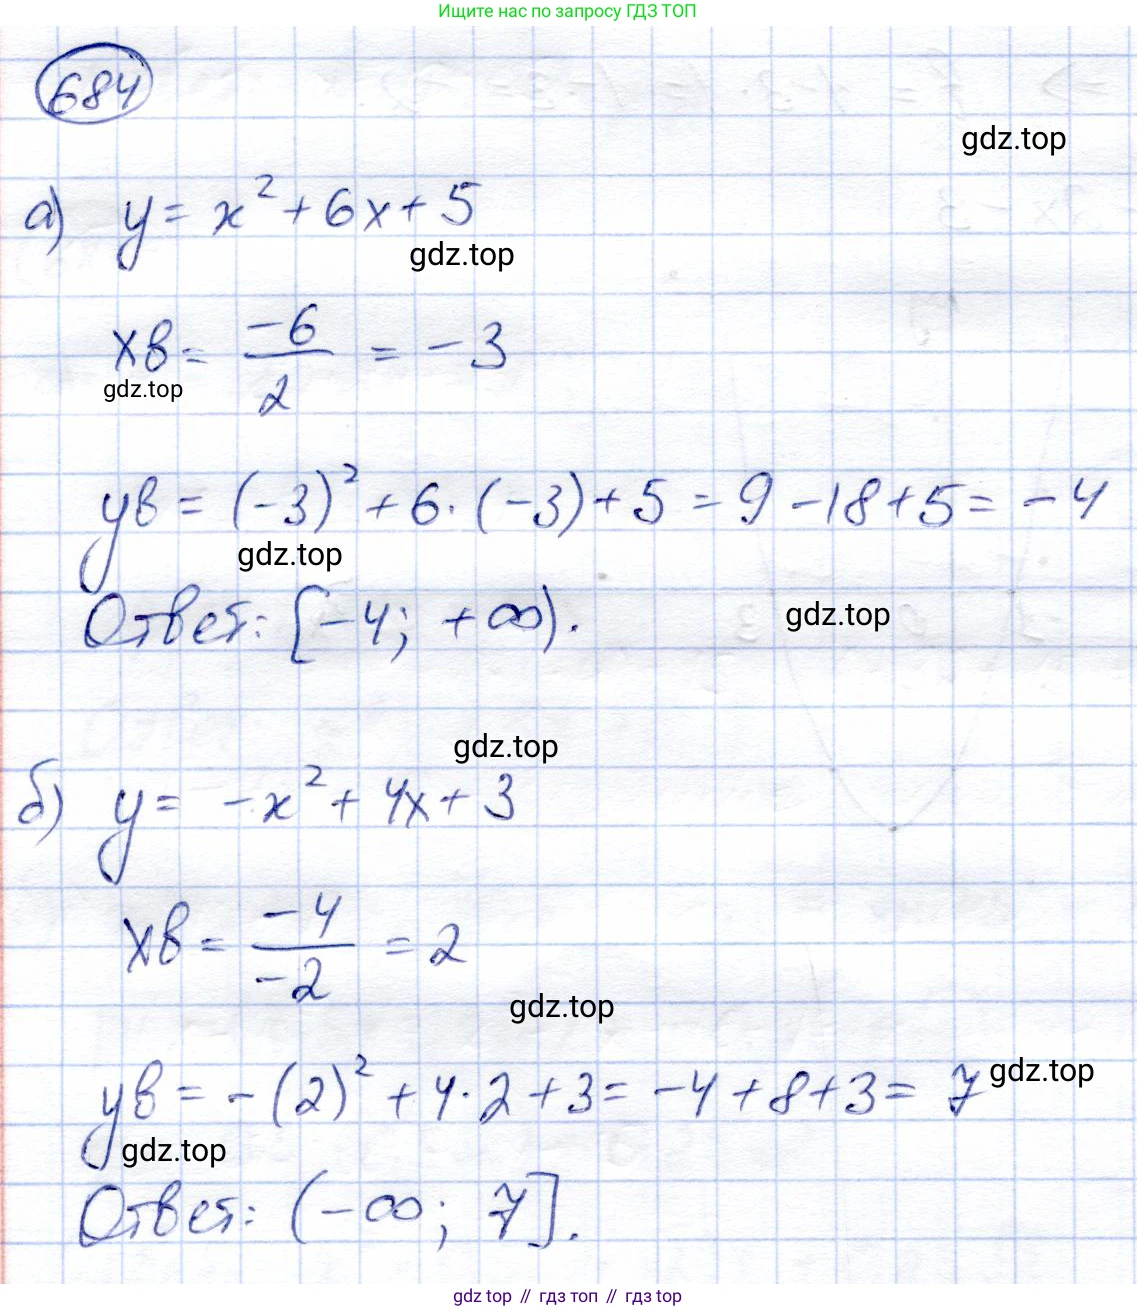 Ищите нас по запросу ГДЗ ТОП
684
gdz.top
а) y = x² + 6x + 5
gdz.top
xв = -6/2 = -3
gdz.top
yв = (-3)² + 6·(-3) + 5 = 9 - 18 + 5 = -4
gdz.top
Ответ: [-4; +∞).
gdz.top
gdz.top
б) y = -x² + 4x + 3
xв = -4/-2 = 2
gdz.top
yв = -(2)² + 4·2 + 3 = -4 + 8 + 3 = 7
gdz.top
gdz.top
Ответ: (-∞; 7].
gdz top // гдз топ // гдз top